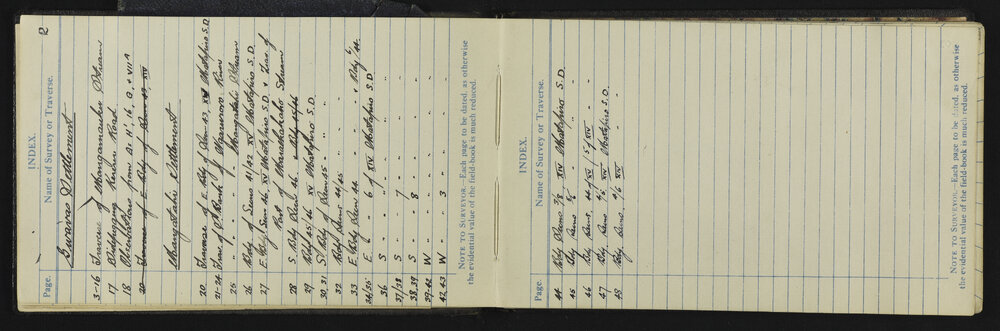 2
INDEX.
Page.
Name of Survey or Traverse.
Gwavas Settlement
3-16 Traverse of Mangamauku Stream
17 Bridging Kuku Road
18 Observations from
20 Traverse of E Bdy of Sec 43, XIV
Mangatahi Settlement
20. Traverse of E Bdy of Sec 43, XVI Matapiro S.D.
21-24 Trav of Bank of River
25 " " " Mangatahi Stream
26 Bdy of Secs 41/42 XVI Matapiro S.D.
27 E Bdy Sec 46, XV Matapiro S.D. & Trav. of
Part of Stream
28 S. Bdy Sec 46 Bdy 45/46
29. Bdy 45/46 XV Matapiro S.D.
30, 31 S Bdy of Sec 45 " "
32 Bdy Secs 44/45 "
33 E Bdy Sec 44 " " & Bdy 6/44.
34/35 E " 6 of XIV Matapiro S.D
36 S " " "
37/38 S " 7 " "
38, 39 S " 8 " "
39-42 W " " "
42, 43 W " 3 " "
NOTE TO SURVEYOR.—Each page to be dated, as otherwise
the evidential value of the field-book is much reduced.
INDEX.
Page.
Name of Survey or Traverse.
44. Bdy Secs 3/6 XIV Matapiro S.D.
45 Bdy Secs " "
46 Bdy Secs, 44 of XV / 5 of XIV "
47 Bdy Secs 4/5 XIV Matapiro S.D.
48 Bdy Secs, 4/6 XIV "
NOTE TO SURVEYOR.—Each page to be dated, as otherwise
the evidential value of the field-book is much reduced.